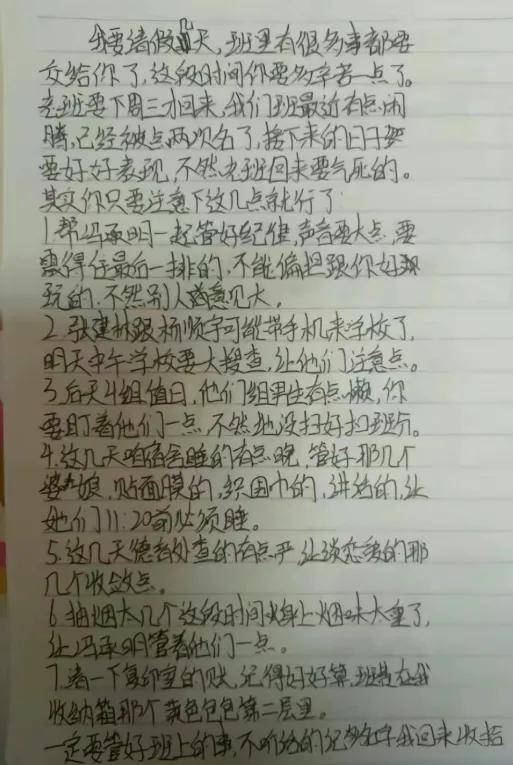 我要请假几天,班里有很多事都要
交给你了,这段时间你要多辛苦一点了。
老班要下周三才回来,我们班最近有点闹
腾,已经被点两次名了,接下来的日子要
要好好表现,不然老班回来要气死的。
其实你只要注意下这几点就行了:
1.帮冯承明一起管好纪律,声音要大点,要
震得住最后一排的,不能偏袒跟你好
玩的,不然别人意见大。
2.张建林跟杨顺宇可能带手机来学校了,
明天中午学校要大搜查,让他们注意点。
3.后天4组值日,他们组男生有点懒,你
要盯着他们一点,不然地没扫好扣班分。
4.这几天咱宿舍睡的有点晚,管好那几个
婆娘,贴面膜的,织围巾的,讲话的,让
她们11:20前必须睡。
5.这几天德育处查的有点严,让谈恋爱的那
几个收敛点。
6.抽烟大几个这段时间身上烟味太重了,
让冯承明管着他们一点。
7.看一下复印室的账,记得好好算,班费在我
收纳箱那个黄色包包第二层里。
一定要管好班上的事,不听话的记名字我回来收拾